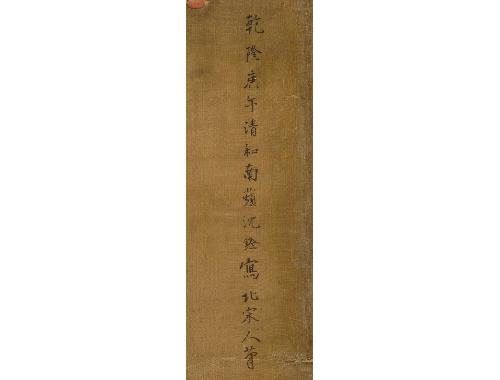 乾隆庚午清和南蘋沈銓寫北宋人筆